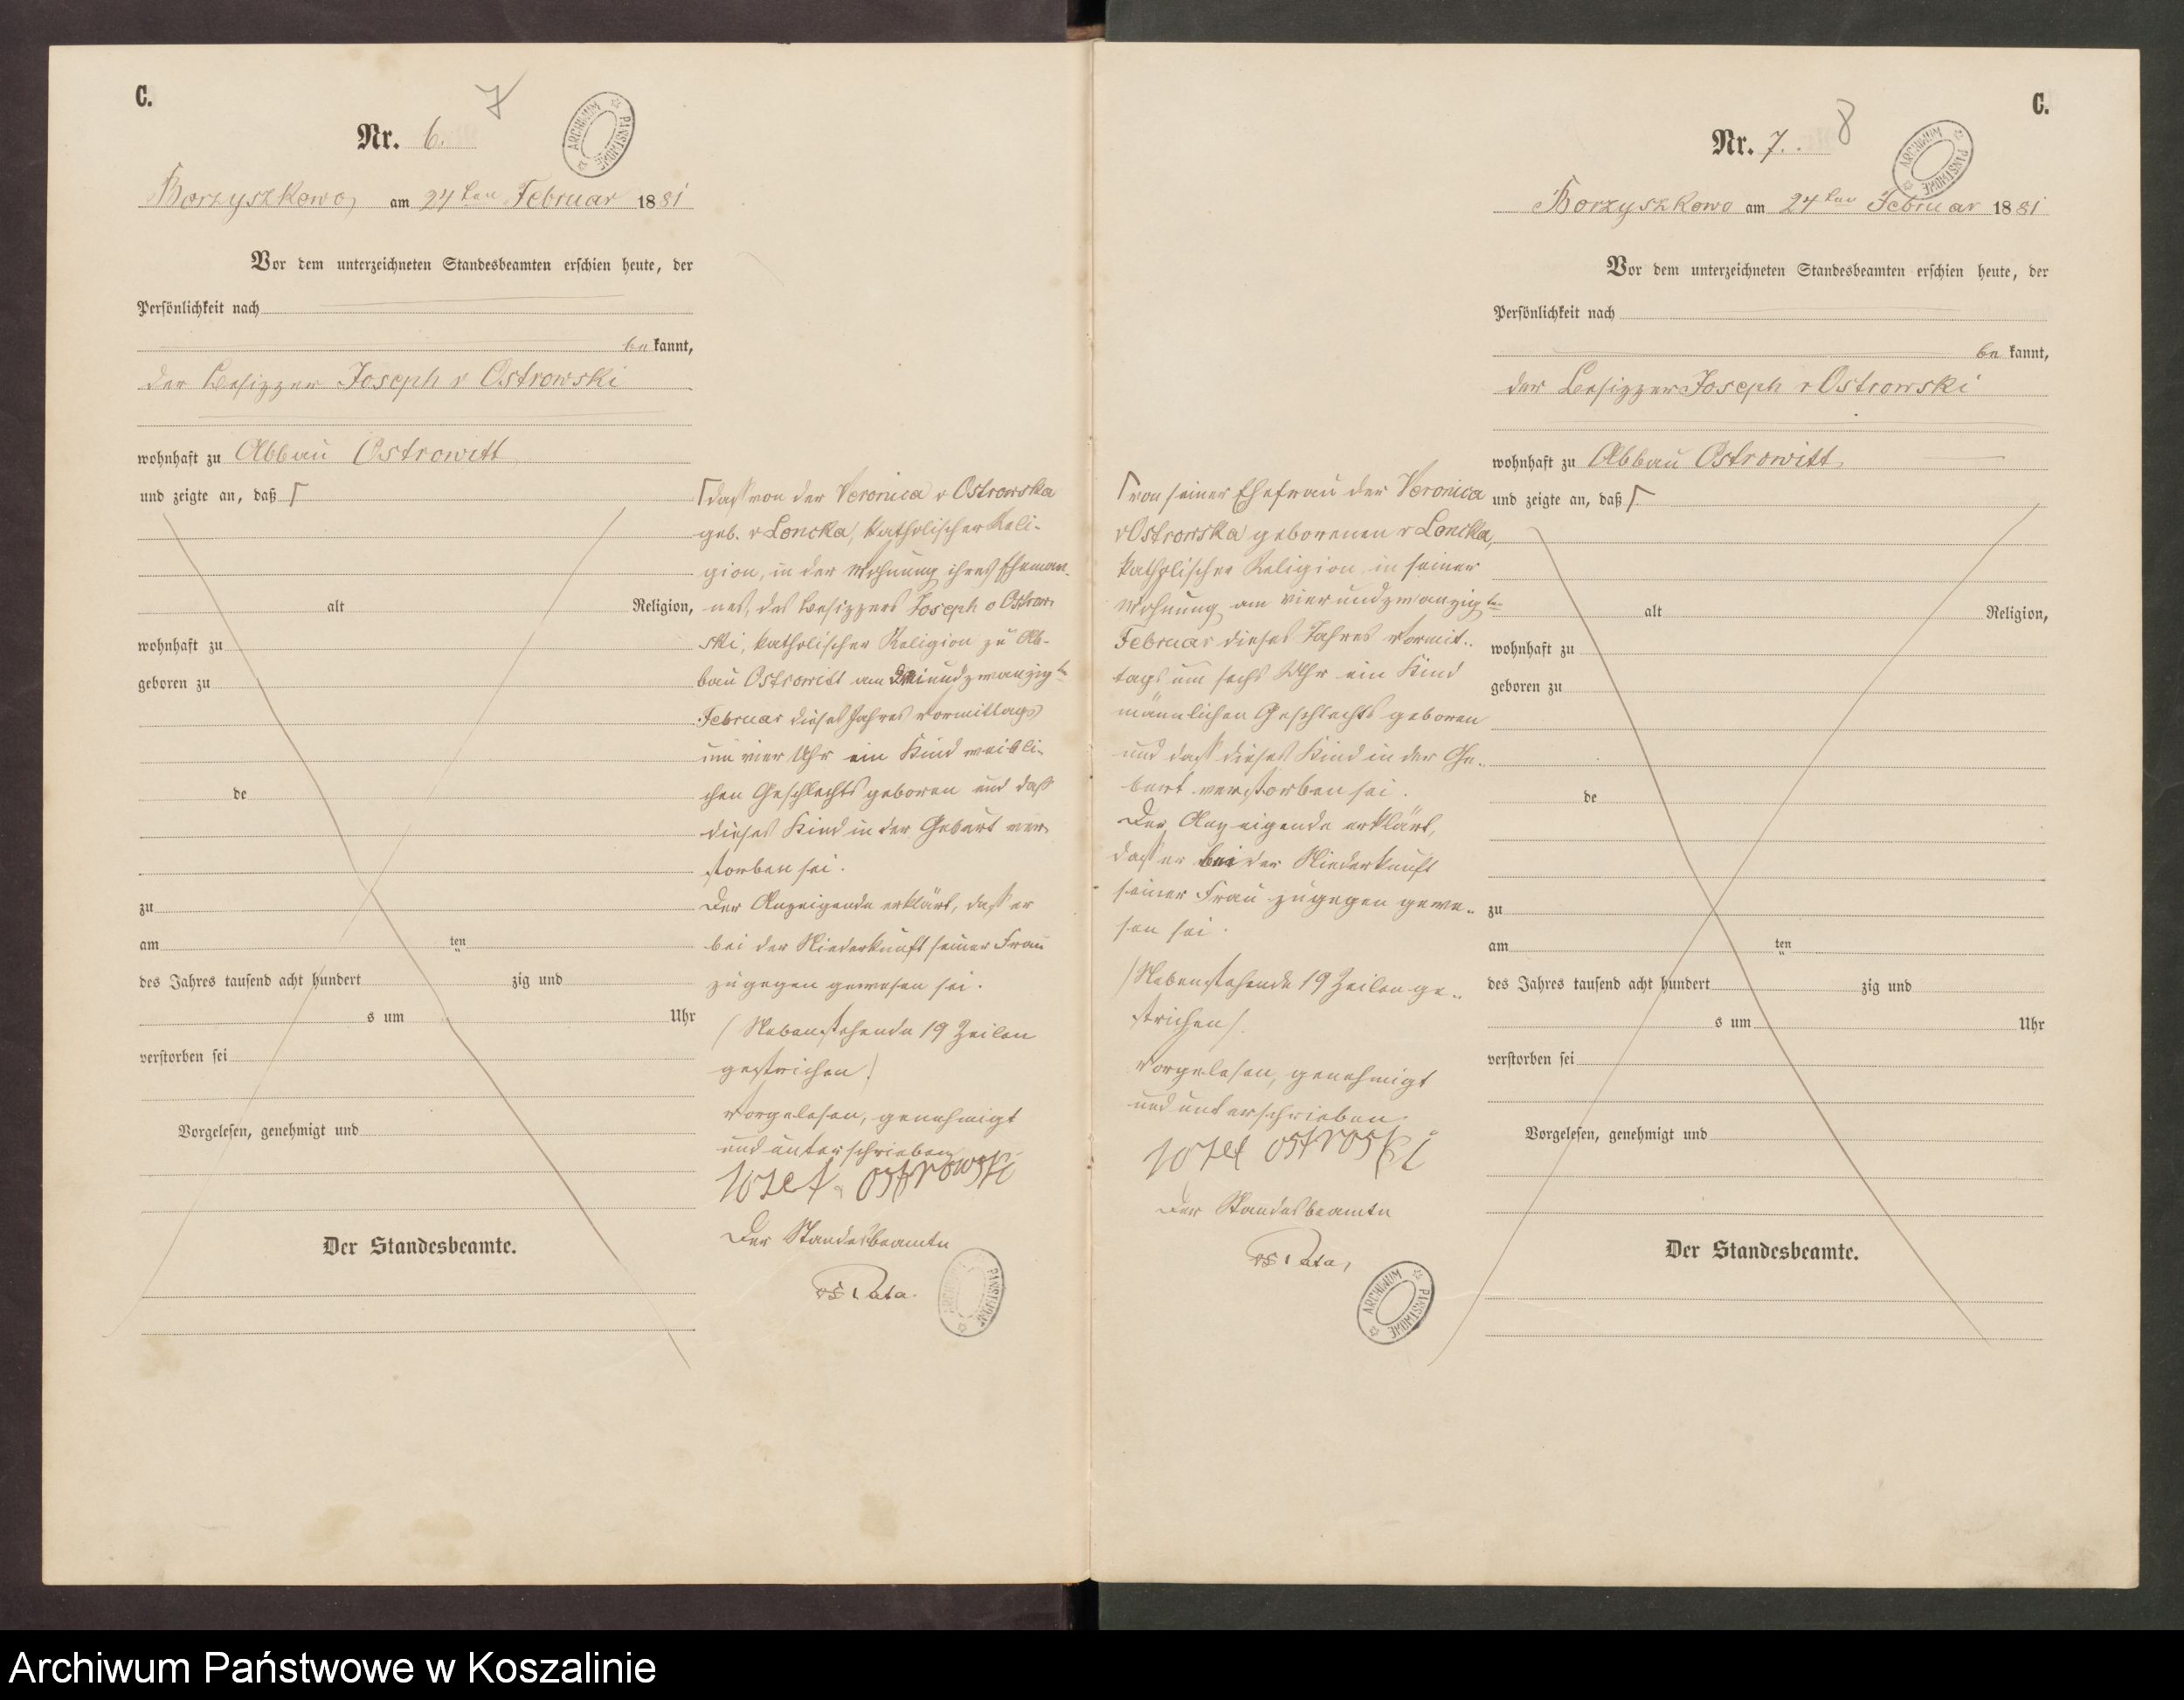 C.
7
Nr. 6.
ARCHIWUM PAŃSTWOWE
Borzyszkowo, am 24ten Februar 1881
Vor dem unterzeichneten Standesbeamten erschien heute, der
Persönlichkeit nach
be kannt,
der Besizzer Joseph v Ostrowski
wohnhaft zu Abbau Ostrowitt
und zeigte an, daß ⌈
alt Religion,
wohnhaft zu
geboren zu
de
zu
am ten
des Jahres tausend acht hundert zig und
s um Uhr
verstorben sei
Vorgelesen, genehmigt und
Der Standesbeamte.
⌈daß von der Veronica v Ostrowska
geb. v Loncka, katholischer Reli-
gion, in der Wohnung ihres Eheman-
nes, des Besizzers Joseph v Ostrow-
ski, katholischer Religion zu Ab-
bau Ostrowitt am undzwanzigten
Februar dieses Jahres Vormittags
um vier Uhr ein Kind weibli-
chen Geschlechts geboren und daß
dieses Kind in der Geburt ver-
storben sei.
Der Anzeigende erklärt, daß er
bei der Niederkunft seiner Frau
zugegen gewesen sei.
(Nebenstehende 19 Zeilen
gestrichen)
Vorgelesen, genehmigt
und unterschrieben
Jozef Ostrowski
Der Standesbeamte
ARCHIWUM PAŃSTWOWE
C.
8
Nr. 7.
ARCHIWUM PAŃSTWOWE
Borzyszkowo am 24ten Februar 1881
Vor dem unterzeichneten Standesbeamten erschien heute, der
Persönlichkeit nach
be kannt,
der Besizzer Joseph v Ostrowski
wohnhaft zu Abbau Ostrowitt
und zeigte an, daß ⌈
alt Religion,
wohnhaft zu
geboren zu
de
zu
am ten
des Jahres tausend acht hundert zig und
s um Uhr
verstorben sei
Vorgelesen, genehmigt und
Der Standesbeamte.
⌈von seiner Ehefrau der Veronica
v Ostrowska geborenen v Loncka,
katholischer Religion in seiner
Wohnung am vierundzwanzigten
Februar dieses Jahres Vormit-
tags um sechs Uhr ein Kind
männlichen Geschlechts geboren
und daß dieses Kind in der Ge-
burt verstorben sei.
Der Anzeigende erklärt,
daß er bei der Niederkunft
seiner Frau zugegen gewe-
sen sei.
(Nebenstehende 19 Zeilen ge-
strichen).
Vorgelesen, genehmigt
und unterschrieben
Jozef Ostroski
Der Standesbeamte
ARCHIWUM PAŃSTWOWE
Archiwum Państwowe w Koszalinie